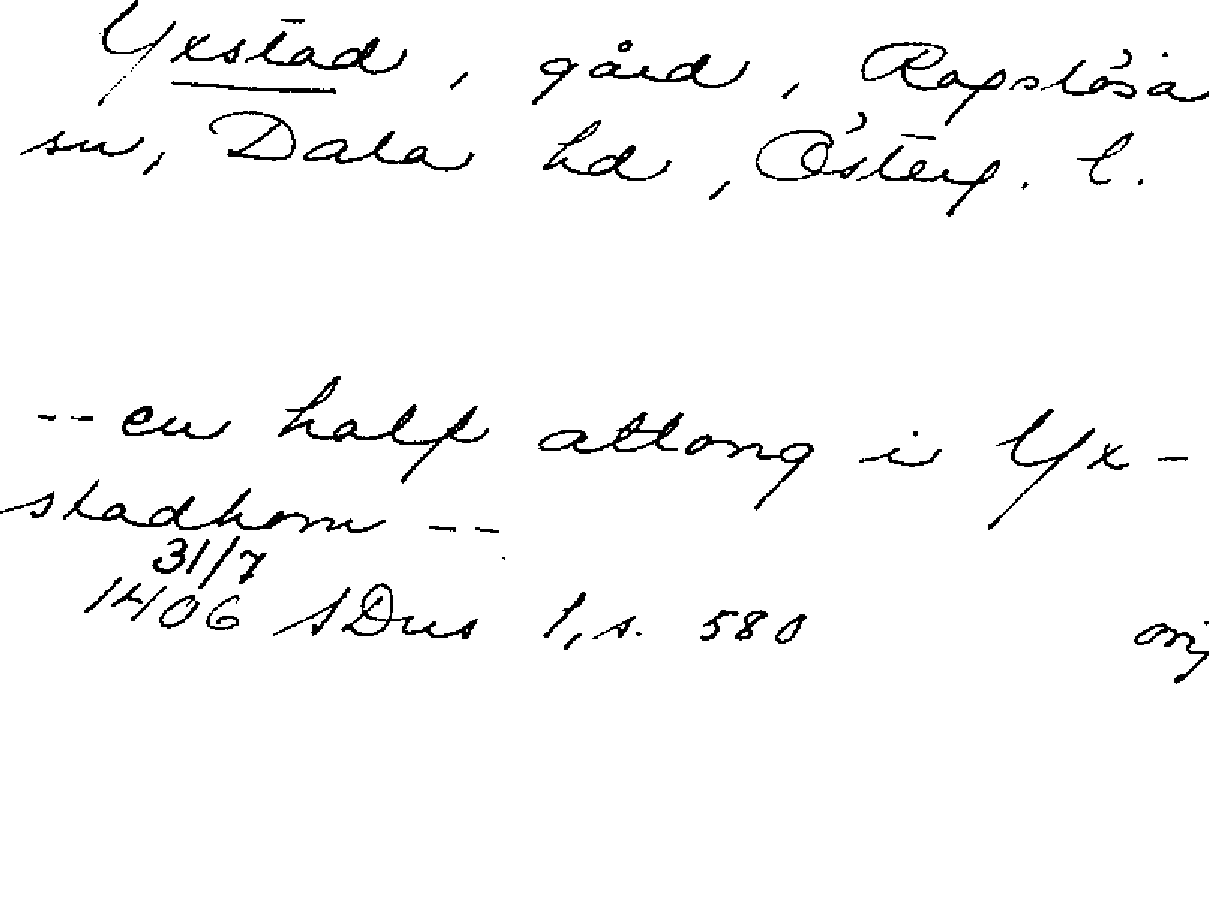 Yxstad, gård, Rogslösa
sn, Dala hd, Österg. l.
-- en half attong i Yx-
stadhom --
31/7
1406 SDns 1, s. 580 orig